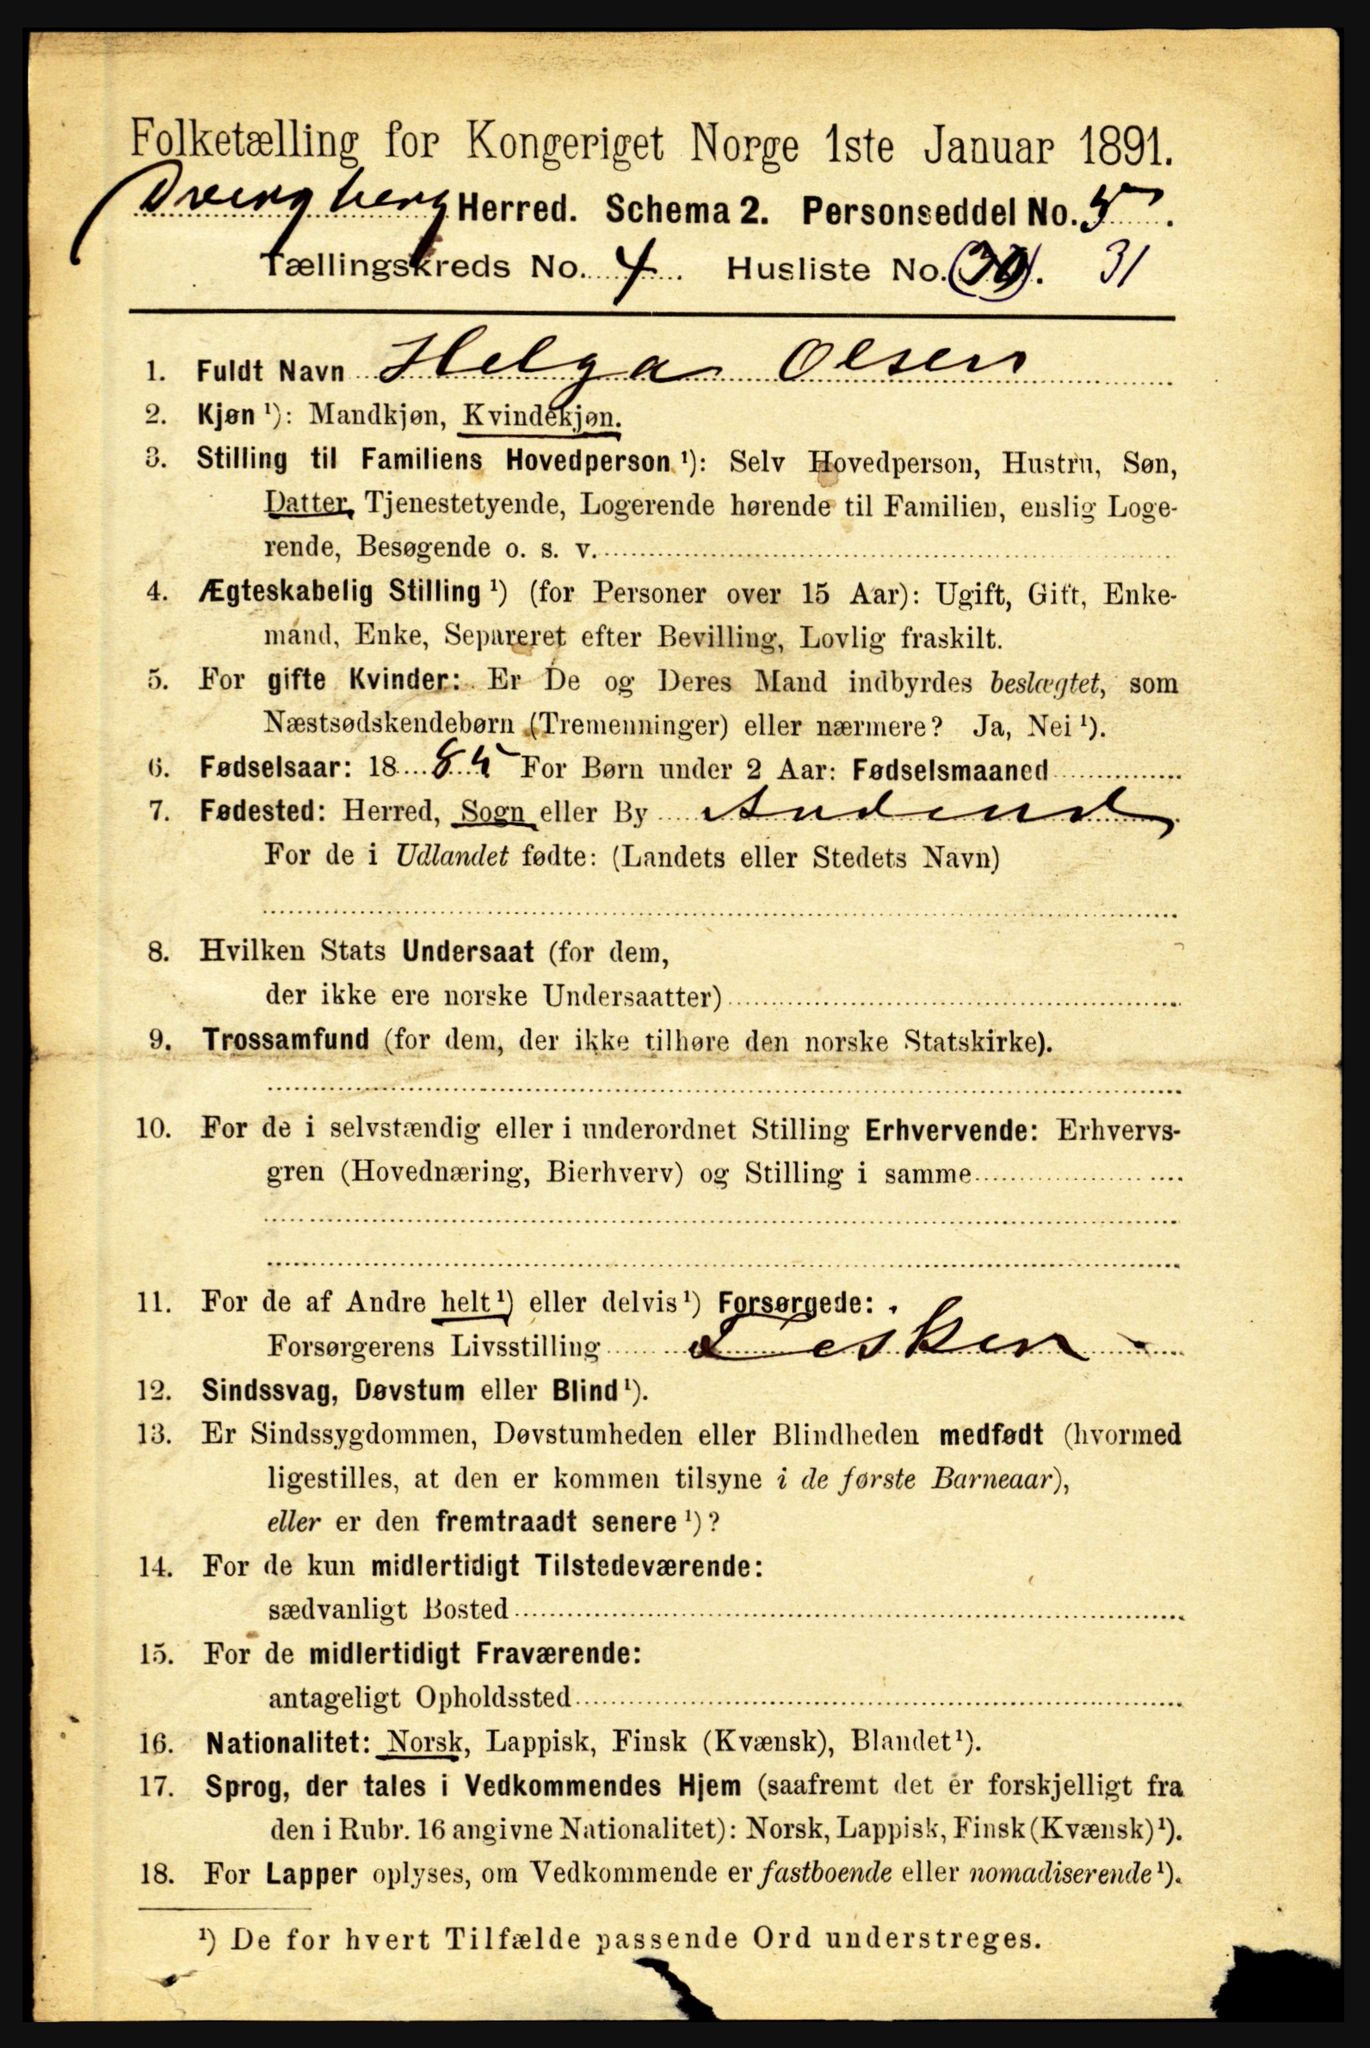 Folketælling for Kongeriget Norge 1ste Januar 1891.
Dvergberg Herred. Schema 2. Personseddel No. 5.
Tællingskreds No. 4. Husliste No. (30). 31
1. Fuldt Navn Helga Olsen
2. Kjøn ¹): Mandkjøn, Kvindekjøn.
3. Stilling til Familiens Hovedperson ¹): Selv Hovedperson, Hustru, Søn,
Datter, Tjenestetyende, Logerende hørende til Familien, enslig Loge-
rende, Besøgende o. s. v.
4. Ægteskabelig Stilling ¹) (for Personer over 15 Aar): Ugift, Gift, Enke-
mand, Enke, Separeret efter Bevilling, Lovlig fraskilt.
5. For gifte Kvinder: Er De og Deres Mand indbyrdes beslægtet, som
Næstsødskendebørn (Tremenninger) eller nærmere? Ja, Nei ¹).
6. Fødselsaar: 18 85 For Børn under 2 Aar: Fødselsmaaned
7. Fødested: Herred, Sogn eller By
For de i Udlandet fødte: (Landets eller Stedets Navn)
8. Hvilken Stats Undersaat (for dem,
der ikke ere norske Undersaatter)
9. Trossamfund (for dem, der ikke tilhøre den norske Statskirke).
10. For de i selvstændig eller i underordnet Stilling Erhvervende: Erhvervs-
gren (Hovednæring, Bierhverv) og Stilling i samme
11. For de af Andre helt ¹) eller delvis ¹) Forsørgede:
Forsørgerens Livsstilling
12. Sindssvag, Døvstum eller Blind ¹).
13. Er Sindssygdommen, Døvstumheden eller Blindheden medfødt (hvormed
ligestilles, at den er kommen tilsyne i de første Barneaar),
eller er den fremtraadt senere ¹)?
14. For de kun midlertidigt Tilstedeværende:
sædvanligt Bosted
15. For de midlertidigt Fraværende:
antageligt Opholdssted
16. Nationalitet: Norsk, Lappisk, Finsk (Kvænsk), Blandet ¹).
17. Sprog, der tales i Vedkommendes Hjem (saafremt det er forskjelligt fra
den i Rubr. 16 angivne Nationalitet): Norsk, Lappisk, Finsk (Kvænsk) ¹).
18. For Lapper oplyses, om Vedkommende er fastboende eller nomadiserende ¹).
¹) De for hvert Tilfælde passende Ord understreges.